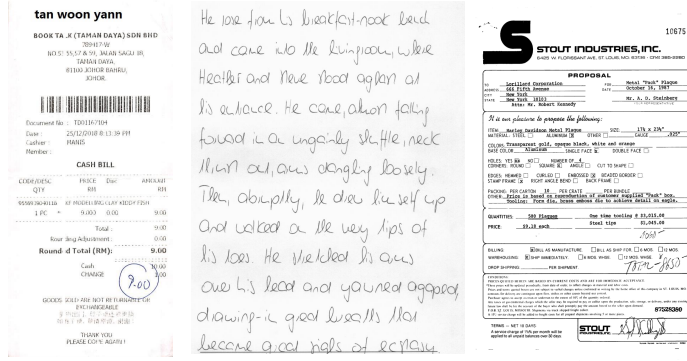 tan woon yann
BOOK TA .K (TAMAN DAYA) SDN BHD
789417-W
NO.5: 55,57 & 59, JALAN SAGU 18,
TAMAN DAYA,
81100 JOHOR BAHRU,
JOHOR.
Document No : TD01167104
Date : 25/12/2018 8:13:39 PM
Cashier : MANIS
Member :
CASH BILL
CODE/DESC PRICE Disc AMOUNT
QTY RM RM
9556939040116 KF MODELLING CLAY KIDDY FISH
1 PC * 9.000 0.00 9.00
Total : 9.00
Rounding Adjustment : 0.00
Round d Total (RM): 9.00
Cash 10.00
CHANGE 1.00
9.00
GOODS SOLD ARE NOT RETURNABLE OR
EXCHANGEABLE
THANK YOU
PLEASE COME AGAIN !
He rose from his breakfast-nook bench
and came into the livingroom, where
Heather and Steve stood aghast at
his entrance. He came, almost falling
forward in an ungainly shuffle, neck
thrust out, arms dangling loosely.
Then, abruptly, he drew himself up
and walked on the very tips of
his toes. He stretched his arms
over his head and yawned agape,
drawing in great breaths that
became great sighs of ecstasy
10675
STOUT INDUSTRIES, INC.
6425 W. FLORISSANT AVE. ST. LOUIS, MO. 63136
PROPOSAL
TO Lorillard Corporation
ADDRESS 666 Fifth Avenue
CITY New York
STATE New York 10103
Attn: Mr. Robert Kennedy
FOR Metal "Pack" Plaque
DATE October 16, 1987
Mr. A. D. Steinberg
It is our pleasure to propose the following:
ITEM Harley Davidson Metal Plaque SIZE 17¾ x 23¾"
MATERIAL: STEEL ALUMINUM OTHER GAUGE .025"
COLORS Transparent gold, opaque black, white and orange
BASE COLOR Aluminum SINGLE FACE DOUBLE FACE
HOLES: YES NO NUMBER OF 4
CORNERS: ROUND SQUARE ANGLE CUT TO SHAPE
EDGES: HEMMED CURLED EMBOSSED BEADED BORDER
STAMP FRAME RIGHT ANGLE BEND BACK FRAME
PACKING: PER CARTON 10 PER CRATE PER BUNDLE
OTHER: Price is based on reproduction of customer supplied "Pack" box.
Tooling: Form die, brass emboss die to achieve detail on eagle.
QUANTITIES: 500 Plaques One time tooling @ $3,015.00
PRICE $9.10 each Steel tips $1,045.00
BILLING: BILL AS MANUFACTURE BILL AS SHIP FOR 6 MOS. 12 MOS.
WAREHOUSING: SHIP IMMEDIATELY. 6 MOS. WHSE 12 MOS.
DROP SHIPPING PER SHIPMENT.
87528380
TERMS — NET 10 DAYS
A service charge of 1½% per month will be
applied to all unpaid balances over 30 days
STOUT